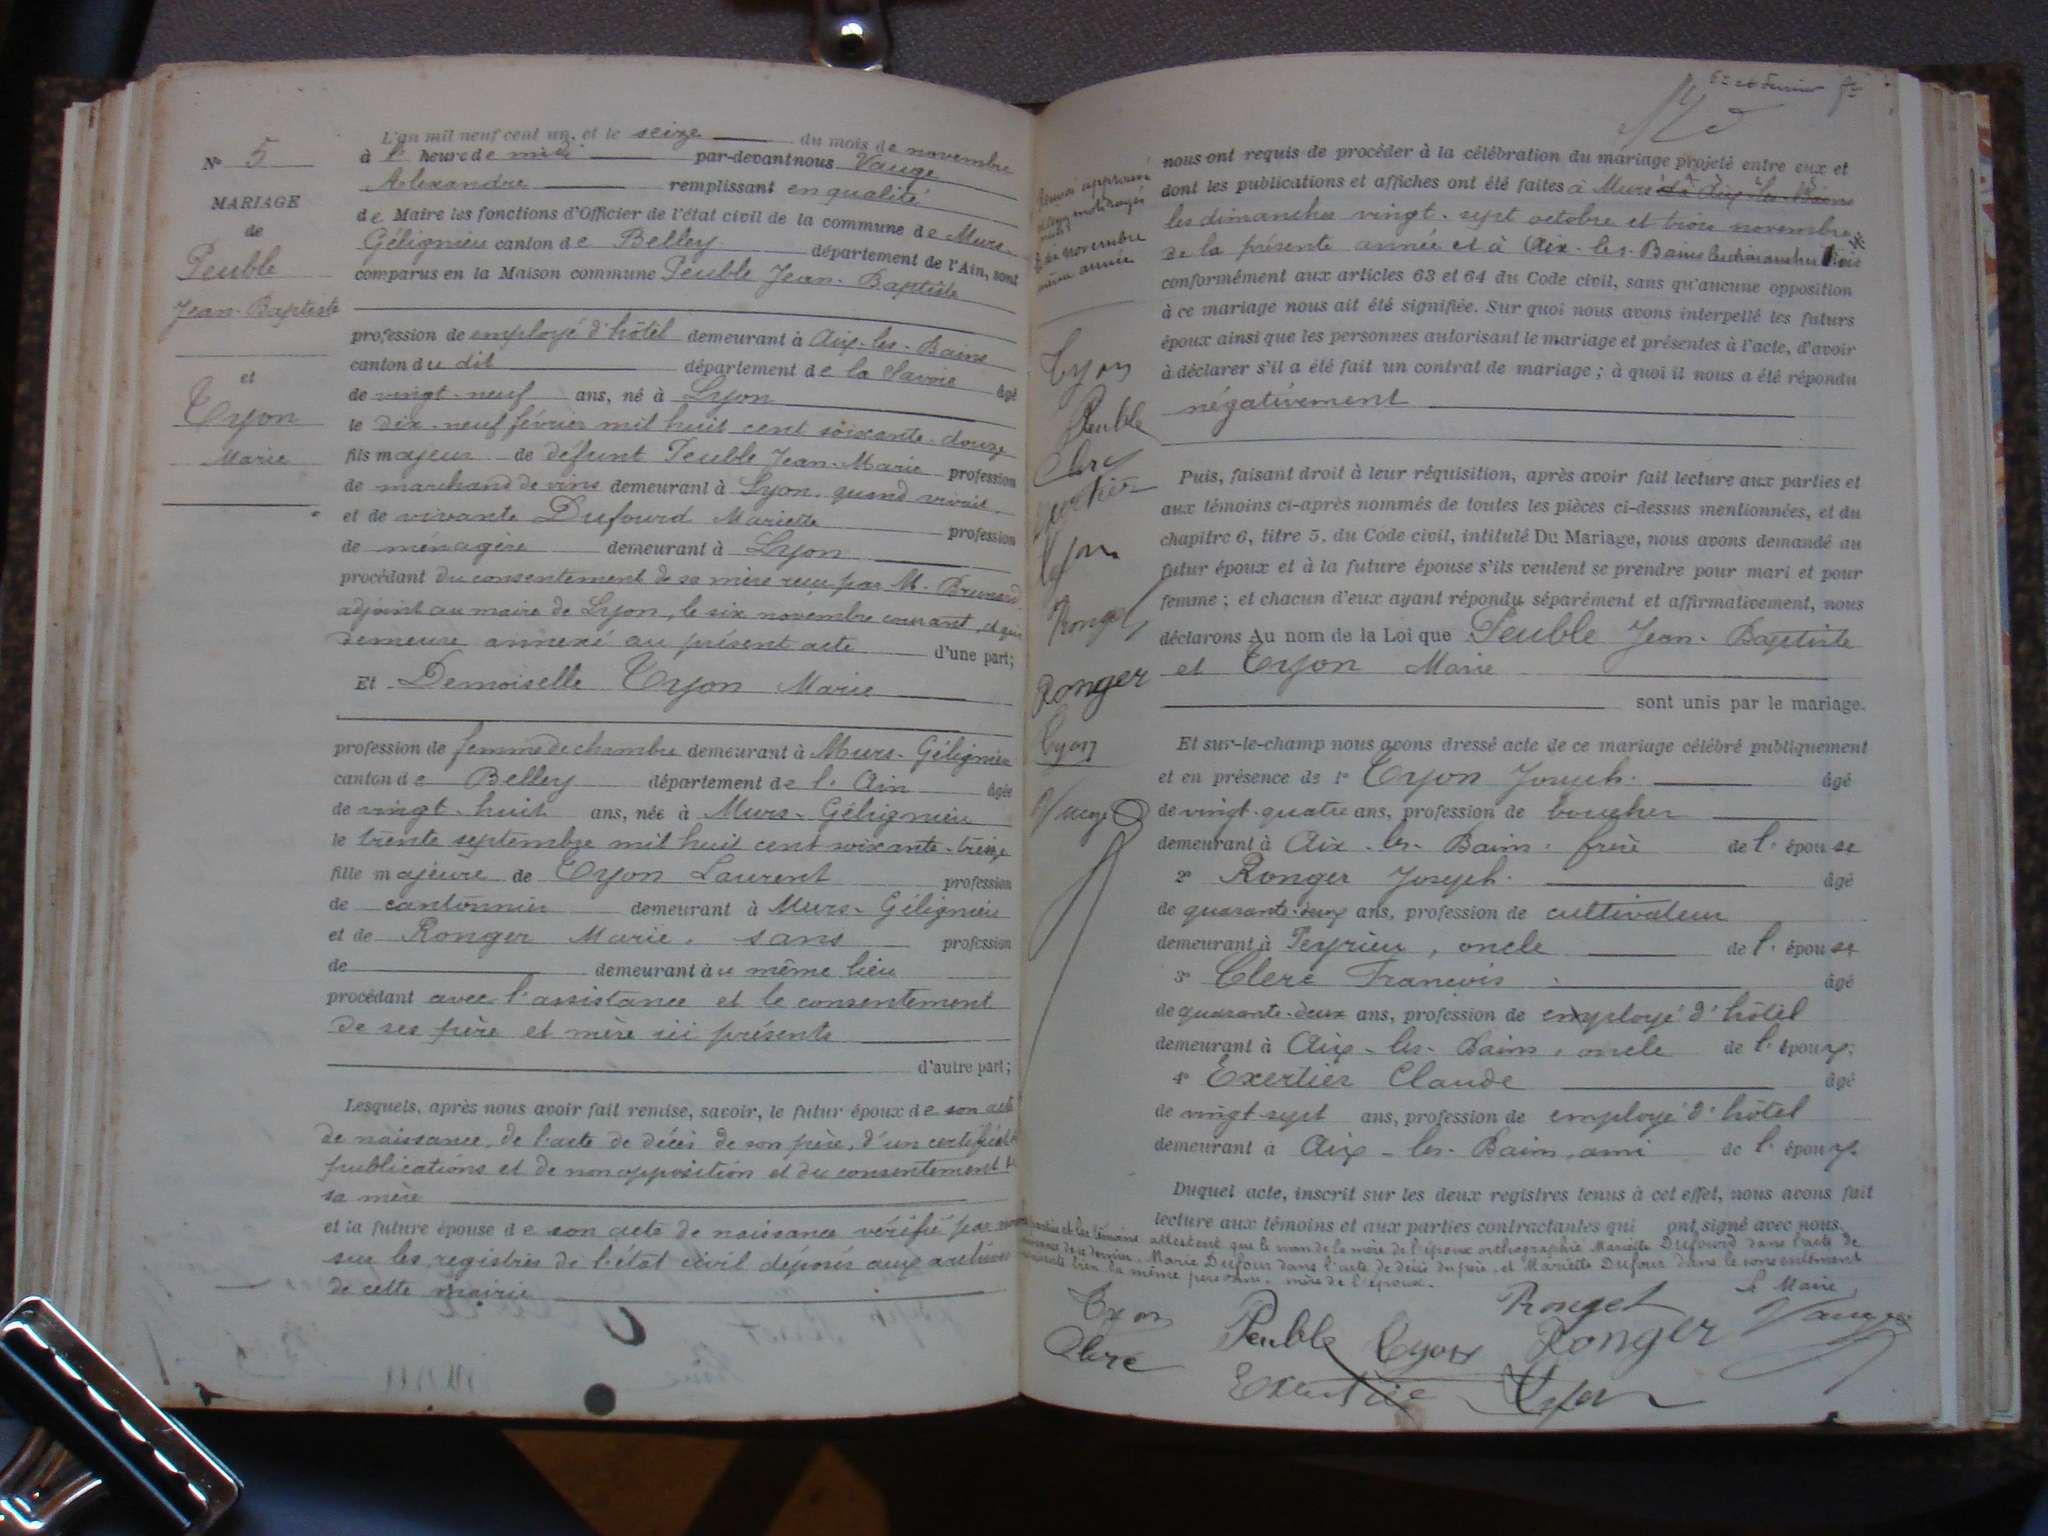 N° 5
MARIAGE
de
Peuble
Jean-Baptiste
et
Tyon
Marie
L'an mil neuf cent un, et le seize du mois de novembre
à l' heure de midi par-devant nous Vauge
Alexandre remplissant en qualité
de Maire les fonctions d'Officier de l'état civil de la commune de Murs-
Gélignieu canton de Belley département de l'Ain, sont
comparus en la Maison commune Peuble Jean-Baptiste
profession de employé d'hôtel demeurant à Aix-les-Bains
canton du dit département de la Savoie âgé
de vingt-neuf ans, né à Lyon
le dix-neuf février mil huit cent soixante-douze
fils majeur de défunt Peuble Jean-Marie profession
de marchand de vins demeurant à Lyon quand vivait
et de vivante Dufourd Mariette profession
de ménagère demeurant à Lyon
procédant du consentement de sa mère reçu par M.
adjoint au maire de Lyon, le six novembre courant, et qui
demeure annexé au présent acte d'une part;
Et Demoiselle Tyon Marie
profession de femme de chambre demeurant à Murs-Gélignieu
canton de Belley département de l'Ain âgée
de vingt-huit ans, née à Murs-Gélignieu
le trente septembre mil huit cent soixante-treize
fille majeure de Tyon Laurent profession
de cantonnier demeurant à Murs-Gélignieu
et de Ronger Marie, sans profession
de demeurant au même lieu
procédant avec l'assistance et le consentement
de ses père et mère ici présents
d'autre part;
Lesquels, après nous avoir fait remise, savoir, le futur époux de son acte
de naissance, de l'acte de décès de son père, d'un certificat de
publications et de non opposition et du consentement de
sa mère
et la future épouse de son acte de naissance vérifié par nous
sur les registres de l'état civil déposés aux archives
de cette mairie
nous ont requis de procéder à la célébration du mariage projeté entre eux et
dont les publications et affiches ont été faites à Murs à Aix-les-Bains
les dimanches vingt-sept octobre et trois novembre
de la présente année et à Aix-les-Bains les dimanches trois
conformément aux articles 63 et 64 du Code civil, sans qu'aucune opposition
à ce mariage nous ait été signifiée. Sur quoi nous avons interpellé les futurs
époux ainsi que les personnes autorisant le mariage et présentes à l'acte, d'avoir
à déclarer s'il a été fait un contrat de mariage; à quoi il nous a été répondu
négativement
Puis, faisant droit à leur réquisition, après avoir fait lecture aux parties et
aux témoins ci-après nommés de toutes les pièces ci-dessus mentionnées, et du
chapitre 6, titre 5, du Code civil, intitulé Du Mariage, nous avons demandé au
futur époux et à la future épouse s'ils veulent se prendre pour mari et pour
femme; et chacun d'eux ayant répondu séparément et affirmativement, nous
déclarons Au nom de la Loi que Peuble Jean-Baptiste
et Tyon Marie
sont unis par le mariage.
Et sur-le-champ nous avons dressé acte de ce mariage célébré publiquement
et en présence de 1° Tyon Joseph âgé
de vingt-quatre ans, profession de boucher
demeurant à Aix-les-Bains, frère de l'épouse
2° Ronger Joseph âgé
de quarante-deux ans, profession de cultivateur
demeurant à Peyrieu, oncle de l'épouse
3° Clerc François âgé
de quarante-deux ans, profession de employé d'hôtel
demeurant à Aix-les-Bains, oncle de l'époux
4° Exertier Claude âgé
de vingt-sept ans, profession de employé d'hôtel
demeurant à Aix-les-Bains, ami de l'époux
Duquel acte, inscrit sur les deux registres tenus à cet effet, nous avons fait
lecture aux témoins et aux parties contractantes qui ont signé avec nous.
et les témoins attestent que le nom de la mère de l'époux orthographié Mariette Dufourd dans l'acte de
naissance de ce dernier, Marie Dufour dans l'acte de décès du père, et Mariette Dufour dans le consentement
bien la même personne, mère de l'époux.
Le Maire
Tyon Peuble Tyon Ronget Ronger Vauge
Clerc Exertier Tyon
renvoi approuvé
novembre
même année
Tyon
Peuble
Clerc
Exertier
Tyon
Ronget
Ronger
Tyon
Vauge